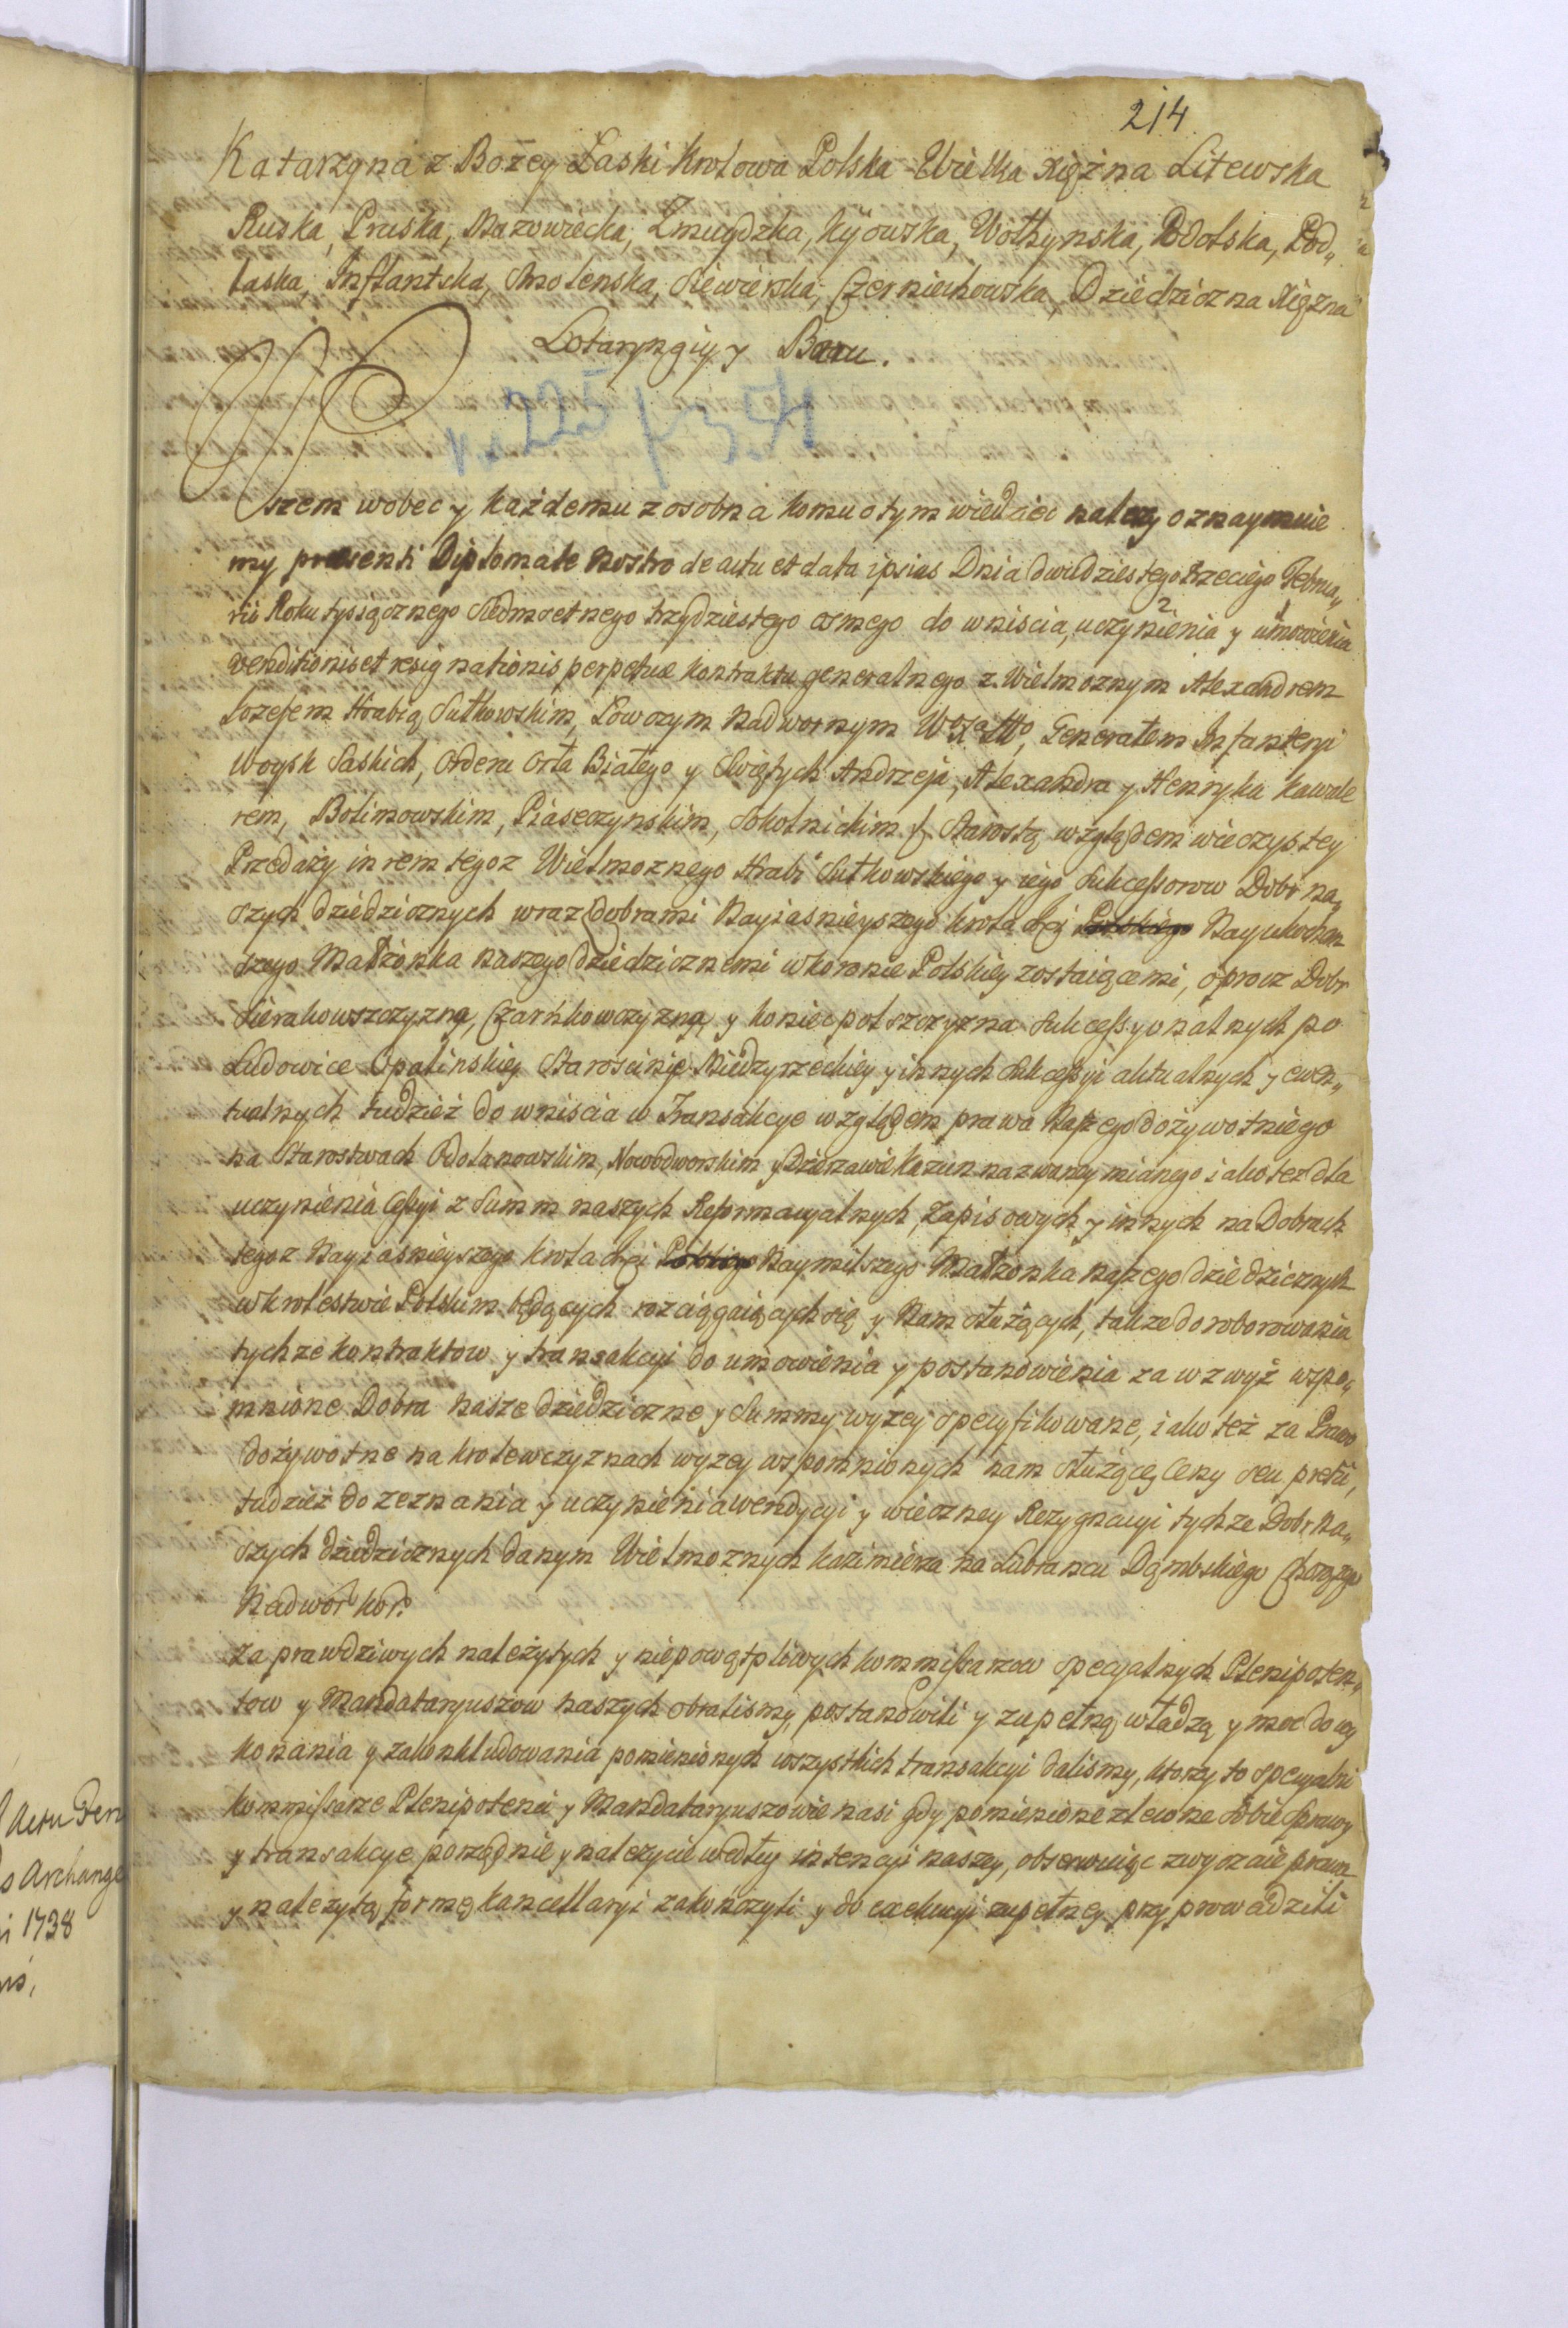 214
Katarzyna z Bożey Łaski Krolowa Polska Wielka Xiężna Litewska
Ruska, Pruska, Mazowiecka, Zmuydzka, Kyiowska, Wołhynska, Podolska, Pod„
laska, Inflantska, Smolenska, Siewierska, Czerniechowska, Dziedziczna Xiężna
Lotaryngiy y Baru.
No 225
Wszem wobec y każdemu z osobna komu o tym wiedziec należy oznaymuie
my praesenti Diplomate Nostro de actu et data ipsius Dnia dwudziestego trzeciego Februa„
rii Roku tysiącznego siedmsetnego trzydziestego osmego do wniscia, uczynienia 2 y umowienia 1
venditionis et resignationis perpetuae kontraktu generalnego z Wielmoznym Alexandrem
Jozefem Hrabią Sułkowskim, Łowczym Nadwornym W. X. Litto, Generałem Infanteryi
Woysk Saskich, Orderu Orła Białego y Swiętych Andrzeja, Alexandra y Henryka Kawale
rem, Bolimowskim, Piaseczynskim, Sokolnickim &. Starostą względem wieczystey
Przedaży in rem tegoz Wielmoznego Hrabi Sułkowskiego y iego Sukcessorow Dobr na„
szych dziedzicznych wraz Dobrami Nayiasnieyszego Krola Jgi Polskiego Nayukochan
szego Małżonka naszego dziedzicznemi w koronie Polskiey zostaiącemi, oprocz Dobr
Sierakowszczyzną, Czarńkowczyzną, y koniecpolszczyzna Sukcessyonalnych po
Ludowice Opalinskiey Starościnie Miedzyrzeckiey y innych Sukcessyi aktualnych y ewen„
tualnych tudzież do wniscia w Transakcye względem prawa Naszego dożywotniego
na Starostwach Odolanowskim, Nowodworskim y Dzierzawie Kazun nazwaney mianego iako tez dla
uczynienia Cessyi z Summ naszych Reformacyalnych, Zapisowych y innych na Dobrach
tegoz Nayiasnieyszego Krola Jgi Polskiego Naymilszego Małzonka naszego dziedzicznych
w krolestwie Polskim będących rozciągaiących się y Nam służących, takze do roborowania
tychze kontraktow y transakcyi do umowienia y postanowienia za wzwyż wspo„
mnione Dobra nasze dziedziczne y Summy wyzey specyfikowane, iako też za Prawo
dożywotne na krolewczyznach wyzey wspomnionych nam służące Ceny seu pretii,
tudzież do zeznania y uczynienia wendycyi y wieczney Rezygnacyi tychze Dobr Na„
szych dziedzicznych danym Wielmoznych Kazimierza na Lubrancu Dąmbskiego Chorązego
Nadwor Kor.
Za prawdziwych należytych y niepowątpliwych kommissarzow specyalnych Plenipoten„
tow y Mandataryuszow naszych obralismy, postanowili y zupełną władzą y moc do wy
konania y zakonkludowania pomienionych wszystkich transakcyi dalismy, ktorzy to specyalni
kommissarze Plenipotenci y Mandataryuszowie nasi gdy pomienione zlecone sobie sprawy
y transakcye porządnie y należycie według intencyi naszey, obserwuiąc zwyczaie prawa
y należytą formę kancellaryi zakończyli y do exekucyi zupełney przyprowadzili
1738